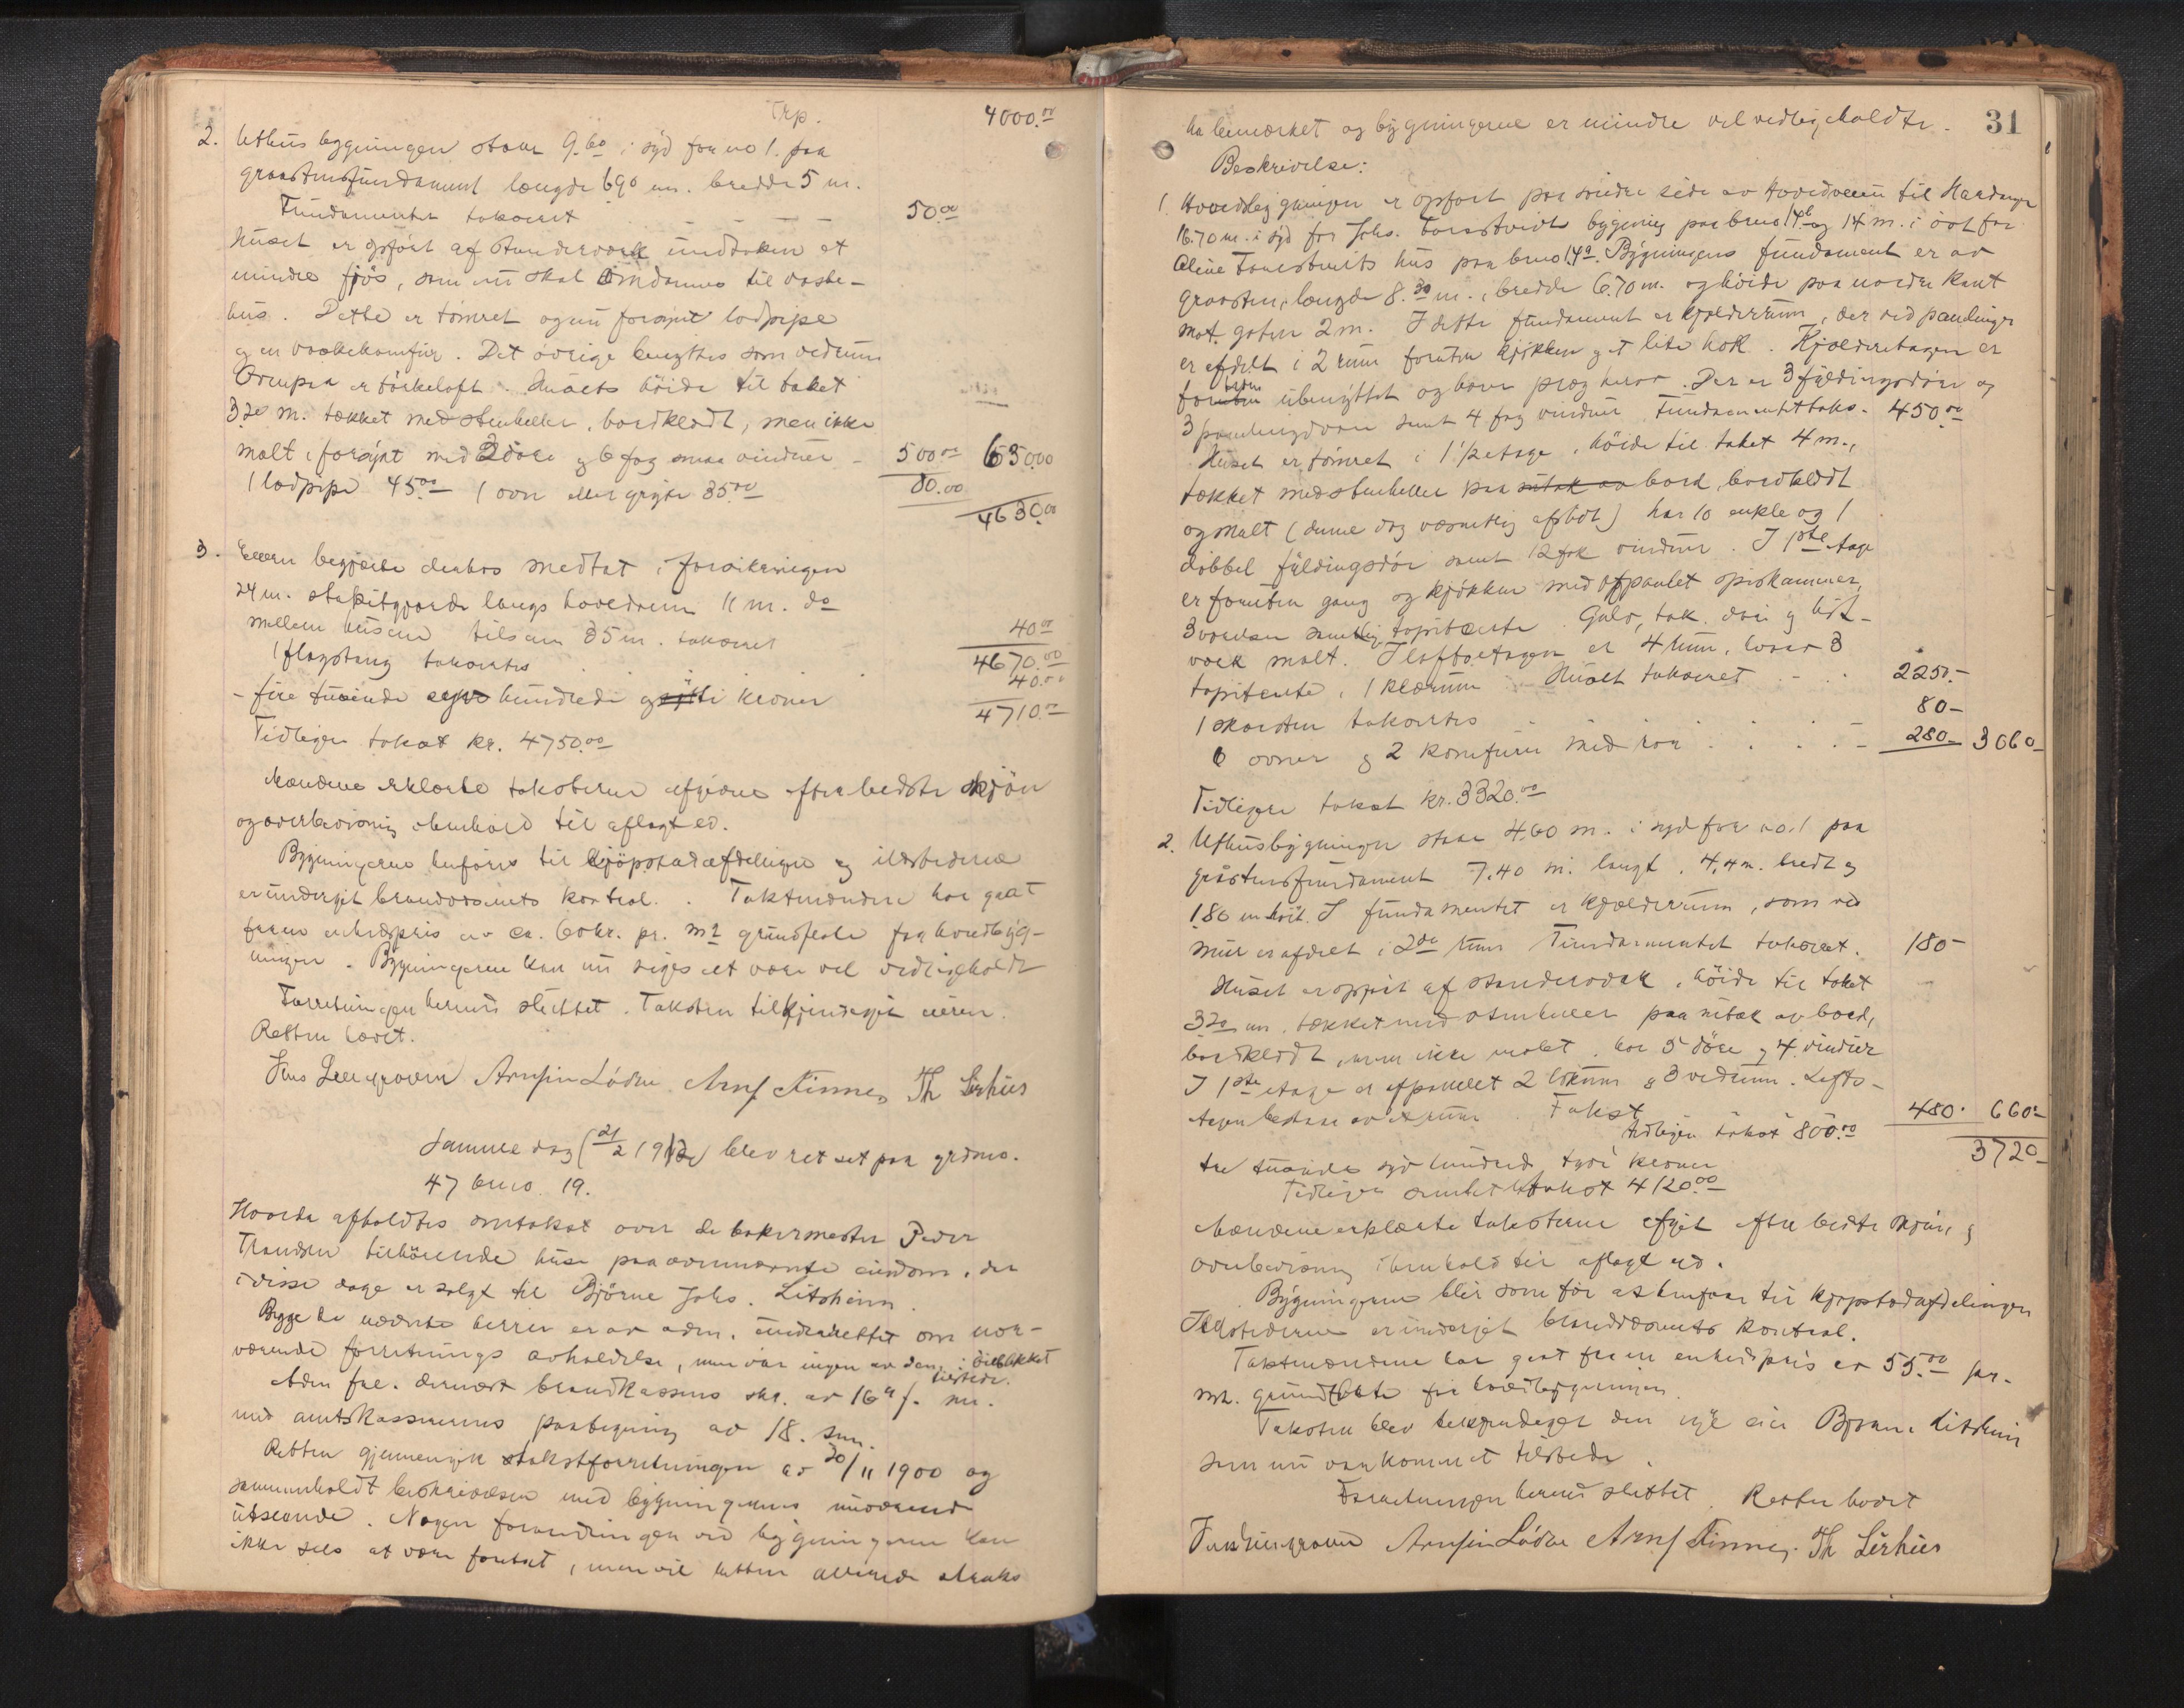 Trp. 4000.00
2. Uthusbygningen staar 9.60 i syd for no 1. paa
graastensfundament længde 690 m. bredde 5 m.
Fundamentet takseret - - - 50.00
Huset er opført af standerverk undtaken et
mindre fjøs, som nu skal omdannes til vaske-
hus. Dette er tømret og nu forsynt lodpipe
og en vaskekomfur. Det øvrige benyttes som vedrum
Ovenpaa er tørkeloft. Husets høide til taket
3.20 m. tækket med stenheller, bordklædt, men ikke
malt, forsynt med 2 døre og 6 fag smaa vinduer - 500.00 630.00
1 lodpipe 45.00 1 ovn eller gryte 35.00 80.00
4630.00
3. Eieren begjærte derhos medtat i forsikringen
24 m. stakitgjærde langs hovedveien 11 m. do
mellem husene tilsam 35 m. takseret 40.00
4670.00
1 flagstang takseres 40.00
- fire tusinde syv hundrede og ti kroner 4710.00
Tidligere takst kr. 4750.00
Mændene erklærte taksterne afgivne efter bedste skjøn
og overbevisning i henhold til aflagt ed.
Bygningerne henføres til kjøpstadafdelingen og ildstederne
er undergit brandvæsenets kontrol. Takstmændene har gaat
fra en enhetspris av ca. 60 kr. pr. m2 grundflate for hovedbyg-
ningen. Bygningerne kan nu siges at være vel vedligeholdt
Forretningen hermed sluttet. Taksten tilkjendegit eieren.
Retten hævet.
Arnfin Lødve Arnf Finne Th Lirhus
Samme dag (21/2 1912) blev ret set paa grdno.
47 brno. 19.
Hvorda afholdtes omtakst over de bakermester Peder
Trondsen tilhørende huse paa ovennævnte eiendom, der
i disse dage er solgt til Bjørne Johs. Litsheim.
Begge de nævnte herrer er av adm. underrettet om nær-
værende forretnings avholdelse, men var ingen av dem i øieblikket
tilstede.
Adm. frl. dernæst brandkassens skr. av 16de f. m.
med amtskassererens paategning av 18. sm.
Retten gjennemgik takstforretningen av 30/11 1900 og
sammenholdt beskrivelsen med bygningernes nuværende
utseende. Nogen forandringer ved bygningerne kan
ikke sees at være foretat, men vil retten allerede straks
31
ha bemærket og bygningerne er mindre vel vedligeholdte.
Beskrivelse:
1. Hovedbygningen er opført paa søndre side av hovedveien til Hardanger
16.70 m. i syd for Johs. Tarastveits bygning paa brno 14b og 14 m. i øst for
Oline Tarastveits hus paa brno 14a. Bygningens fundament er av
graasten, længde 8.30 m., bredde 6.70 m. og høide paa nordre kant
mot gaten 2 m. I dette fundament er kjælderrum, der ved panelinger
er afdelt i 2 rum foruten kjøkken og et lite hok. Kjælderetagen er
for tiden ubenyttet og bærer præg herav. Der er 3 fyldingsdøre og
3 panelingsdøre samt 4 fag vinduer. Fundamentet taks. 450.00
Huset er tømret i 1 1/2 etage, høide til taket 4 m.,
tækket med stenheller paa bord, bordklædt
og malt (denne dog væsentlig afslidt) har 10 enkle og 1
dobbel fyldingsdør samt 12 fag vinduer. I 1ste etage
er foruten gang og kjøkken med afpanlet spiskammer,
3 værelser samtlig tapitserte. Gulv, tak, døre og list-
værk malt. I loftsetagen er 4 rum, hvorav 3
tapitserte, 1 klærum. Huset takseret 2250.-
1 skorsten takseres 80-
6 ovner og 2 komfurer med rør 280- 3060-
Tidligere takst kr. 3320.00
2. Uthusbygningen staar 4.60 m. i syd for no. 1 paa
gråstensfundament 7.40 m. langt, 4,4 m. bredt og
1.80 m høit. I fundamentet er kjælderrum, som ved
mur er afdelt i 2de rum Fundamentet takseret. 180-
Huset er opført af standerverk, høide til taket
3.20 m. tækket med stenheller paa utak av bord,
bordklædt, men ikke malet, har 5 døre og 4 vinduer
I 1ste etage er afpanelet 2 lokum og 3 vedrum. Lofts-
etagen bestaar av rum. Takst 480. 660-
tidligere takst 800.00
3720-
tre tusinde syv hundred tyve kroner
Tidligere samlet takst 4120.00
Mændene erklærte taksterne afgit efter bedste skjøn og
overbevisning i henhold til aflagt ed.
Bygningerne blir som før at henføre til kjøpstadafdelingen
Ildstederne er undergit brandvæsenets kontrol.
Takstmændene har gaat fra en enhedspris av 55.00 pr.
m2. grundflate for hovedbygningen.
Taksten blev tilkjendegit den nye eier Bjørne Litsheim
som nu var kommet tilstede.
Forretningen hermed sluttet. Retten hævet
Arnfin Lødve Arnf Finne Th Lirhus